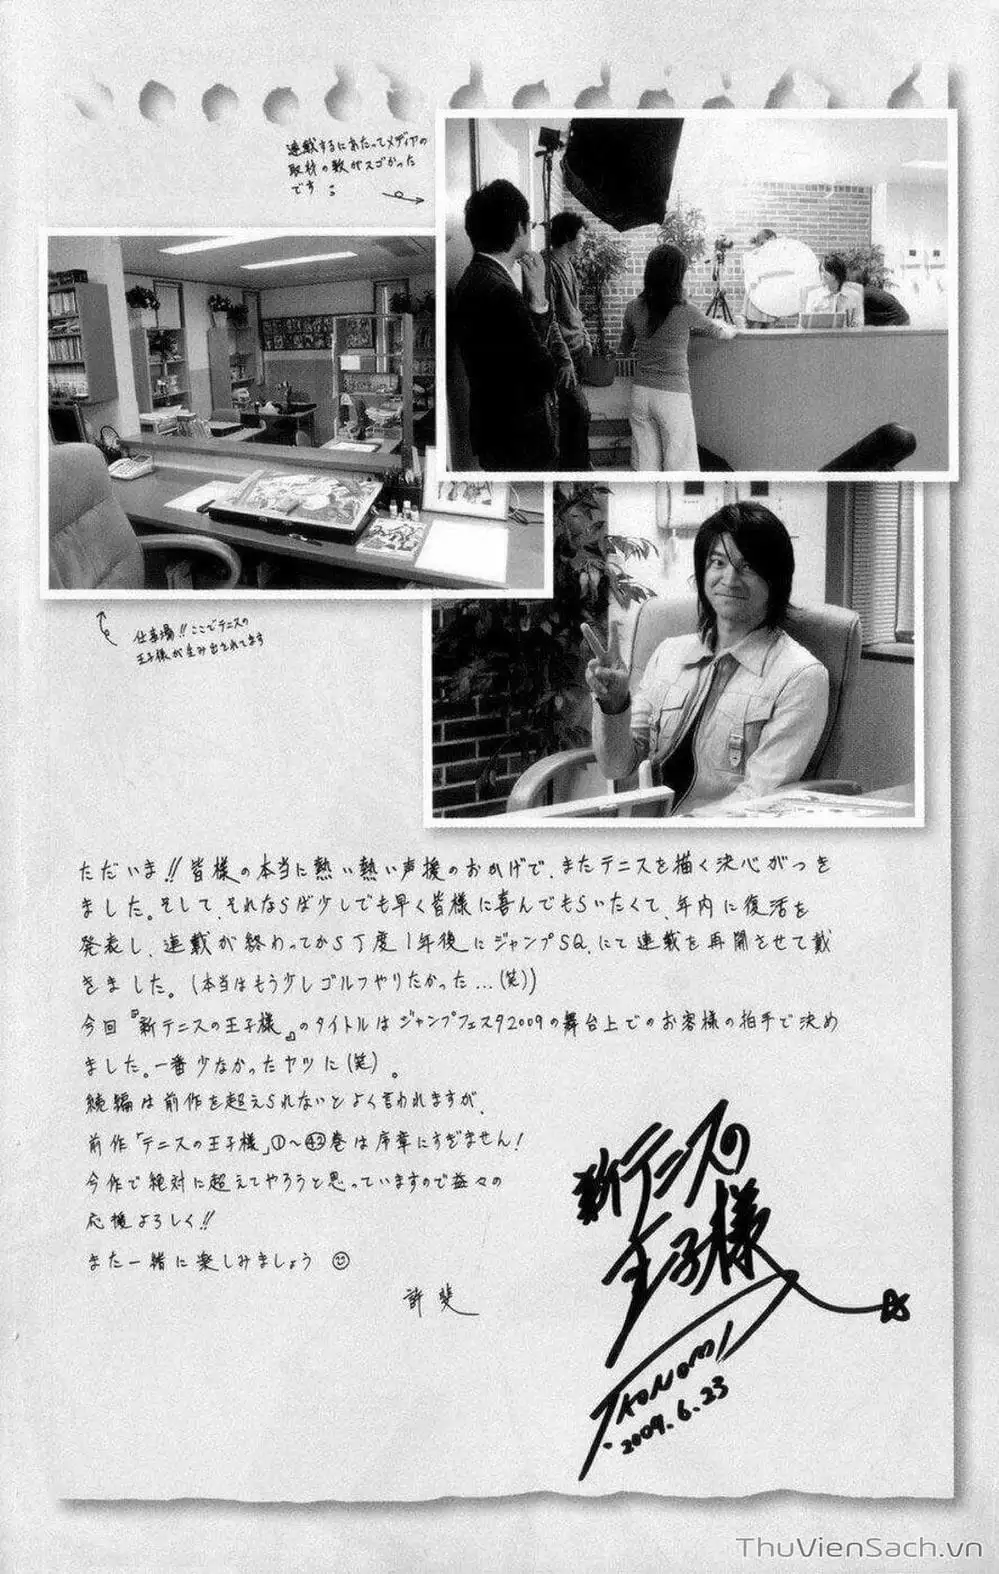 連載するにあたってメディアの
取材の数がスゴかった
です
仕事場!!ここでテニスの
王子様が生み出されてます
ただいま!!皆様の本当に熱い熱い声援のおかげで、またテニスを描く決心がつき
ました。そして、それならば少しでも早く皆様に喜んでもらいたくて、年内に復活を
発表し、連載が終わってから丁度1年後にジャンプSQ.にて連載を再開させて戴
きました。(本当はもう少しゴルフやりたかった...(笑))
今回『新テニスの王子様』のタイトルはジャンプフェスタ2009の舞台上でのお客様の拍手で決め
ました。一番少なかったヤツに(笑)。
続編は前作を超えられないとよく言われますが、
前作「テニスの王子様」①~㊷巻は序章にすぎません!
今作で絶対に超えてやろうと思っていますので益々の
応援よろしく!!
また一緒に楽しみましょう
許斐
新テニスの
王子様
T.KONOMI
2009.6.23
ThuVienSach.vn